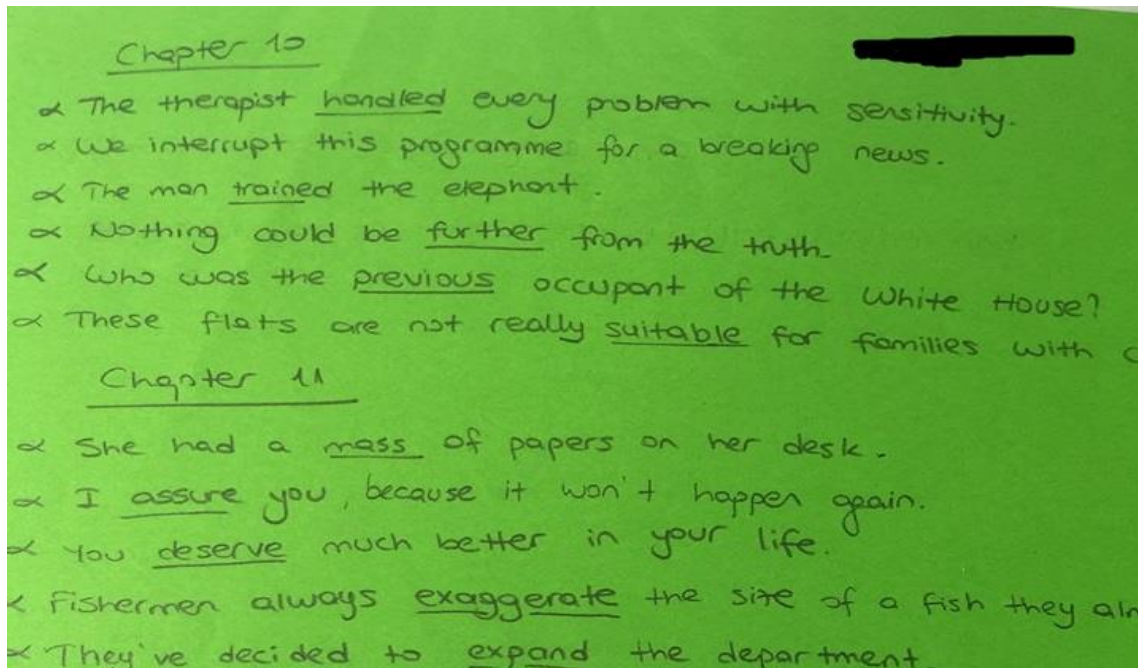 Chapter 10
∝ The therapist handled every problem with sensitivity.
∝ We interrupt this programme for a breaking news.
∝ The man trained the elephant.
∝ Nothing could be further from the truth.
∝ Who was the previous occupant of the White House?
∝ These flats are not really suitable for families with
Chapter 11
∝ She had a mass of papers on her desk.
∝ I assure you, because it won't happen again.
∝ You deserve much better in your life.
∝ Fishermen always exaggerate the size of a fish they
∝ They've decided to expand the department